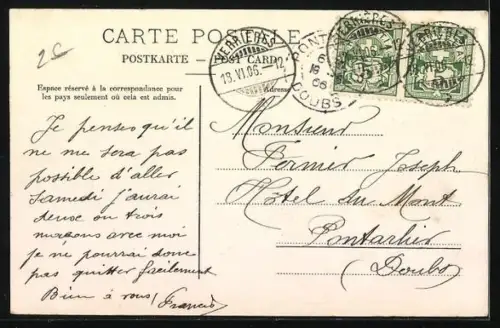 2€
CARTE POSTALE
POSTKARTE — POST CARD
Espace réservé à la correspondance pour
les pays seulement où cela est admis.
Adresse
VERRIÈRES
18.VI.06.–12
PONT
DOUBS
VERRIÈRES
VERRIÈRES
5
5
Je pense qu'il
ne me sera pas
possible d'aller
samedi j'aurai
deux ou trois
maçons avec moi
je ne pourrai donc
pas quitter facilement
Bien à vous Francis
Monsieur
Pernier Joseph
Hôtel du Mont
Pontarlier
(Doubs)